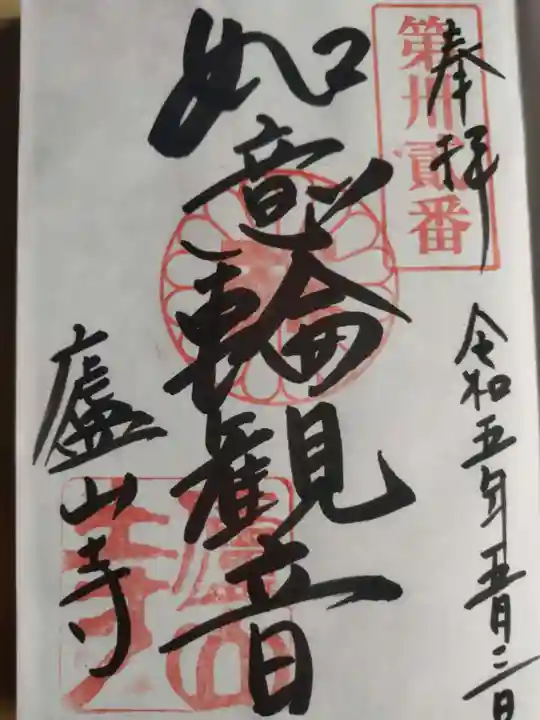 奉拝
第卅貳番
令和五年五月二日
如意輪観音
廬山寺
廬山寺